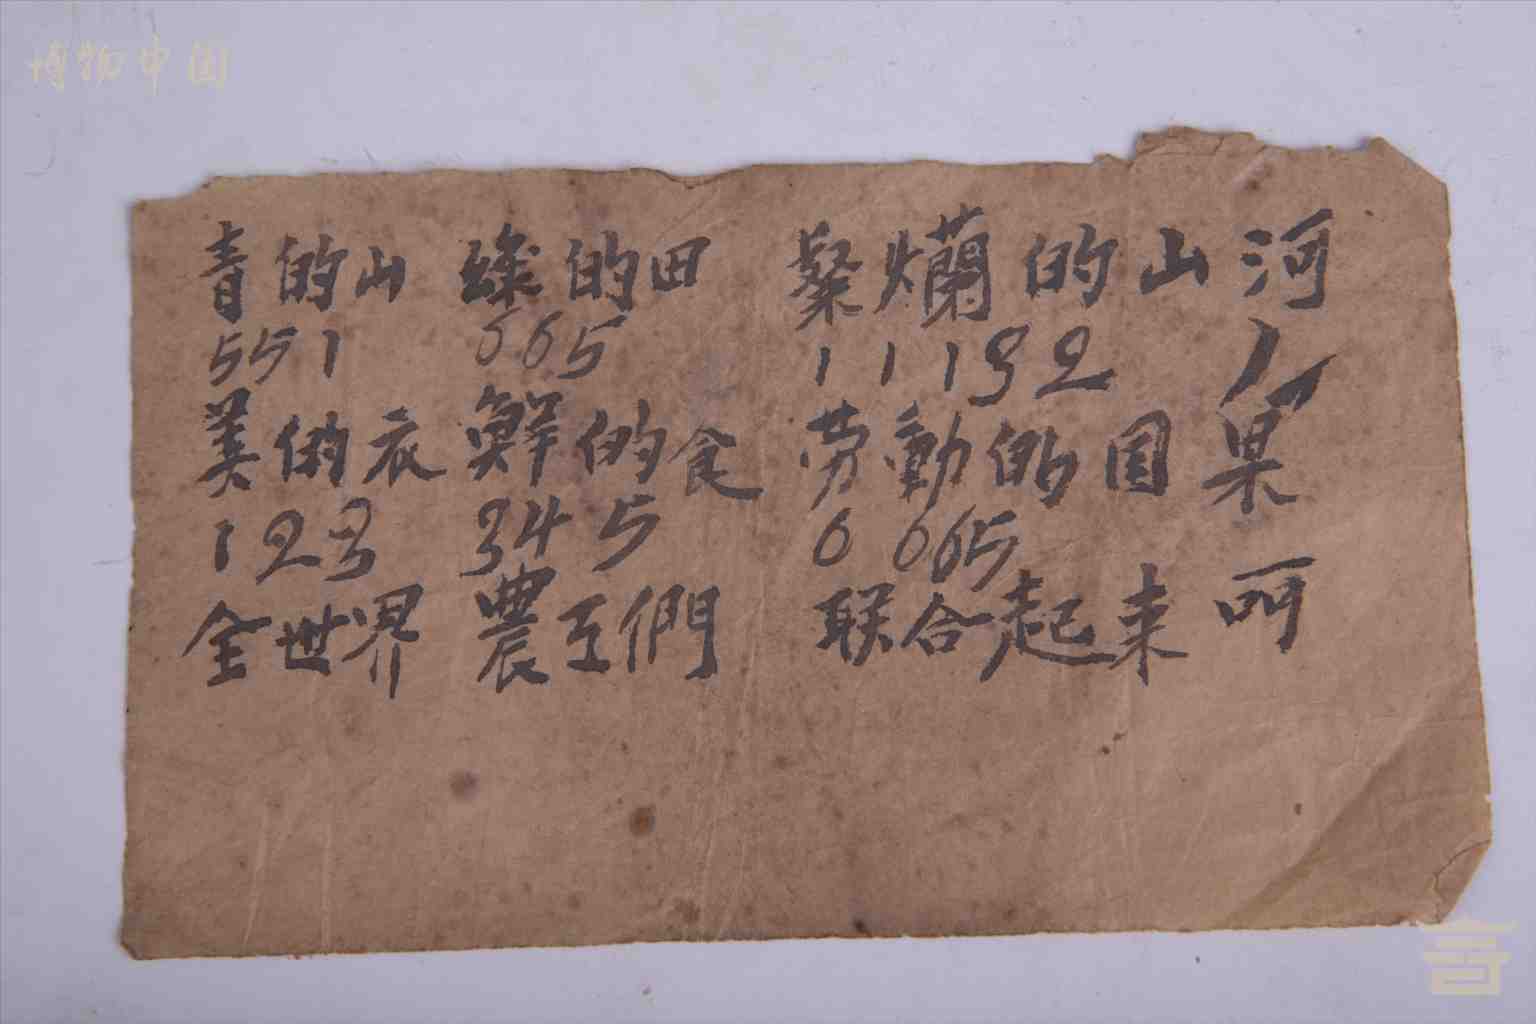 博物中国
青的山 绿的田 粲爛的山河
551 665 11132 1
美的衣 鮮的食 劳動的囯果
123 345 6 665
全世界 農工們 联合起来呵